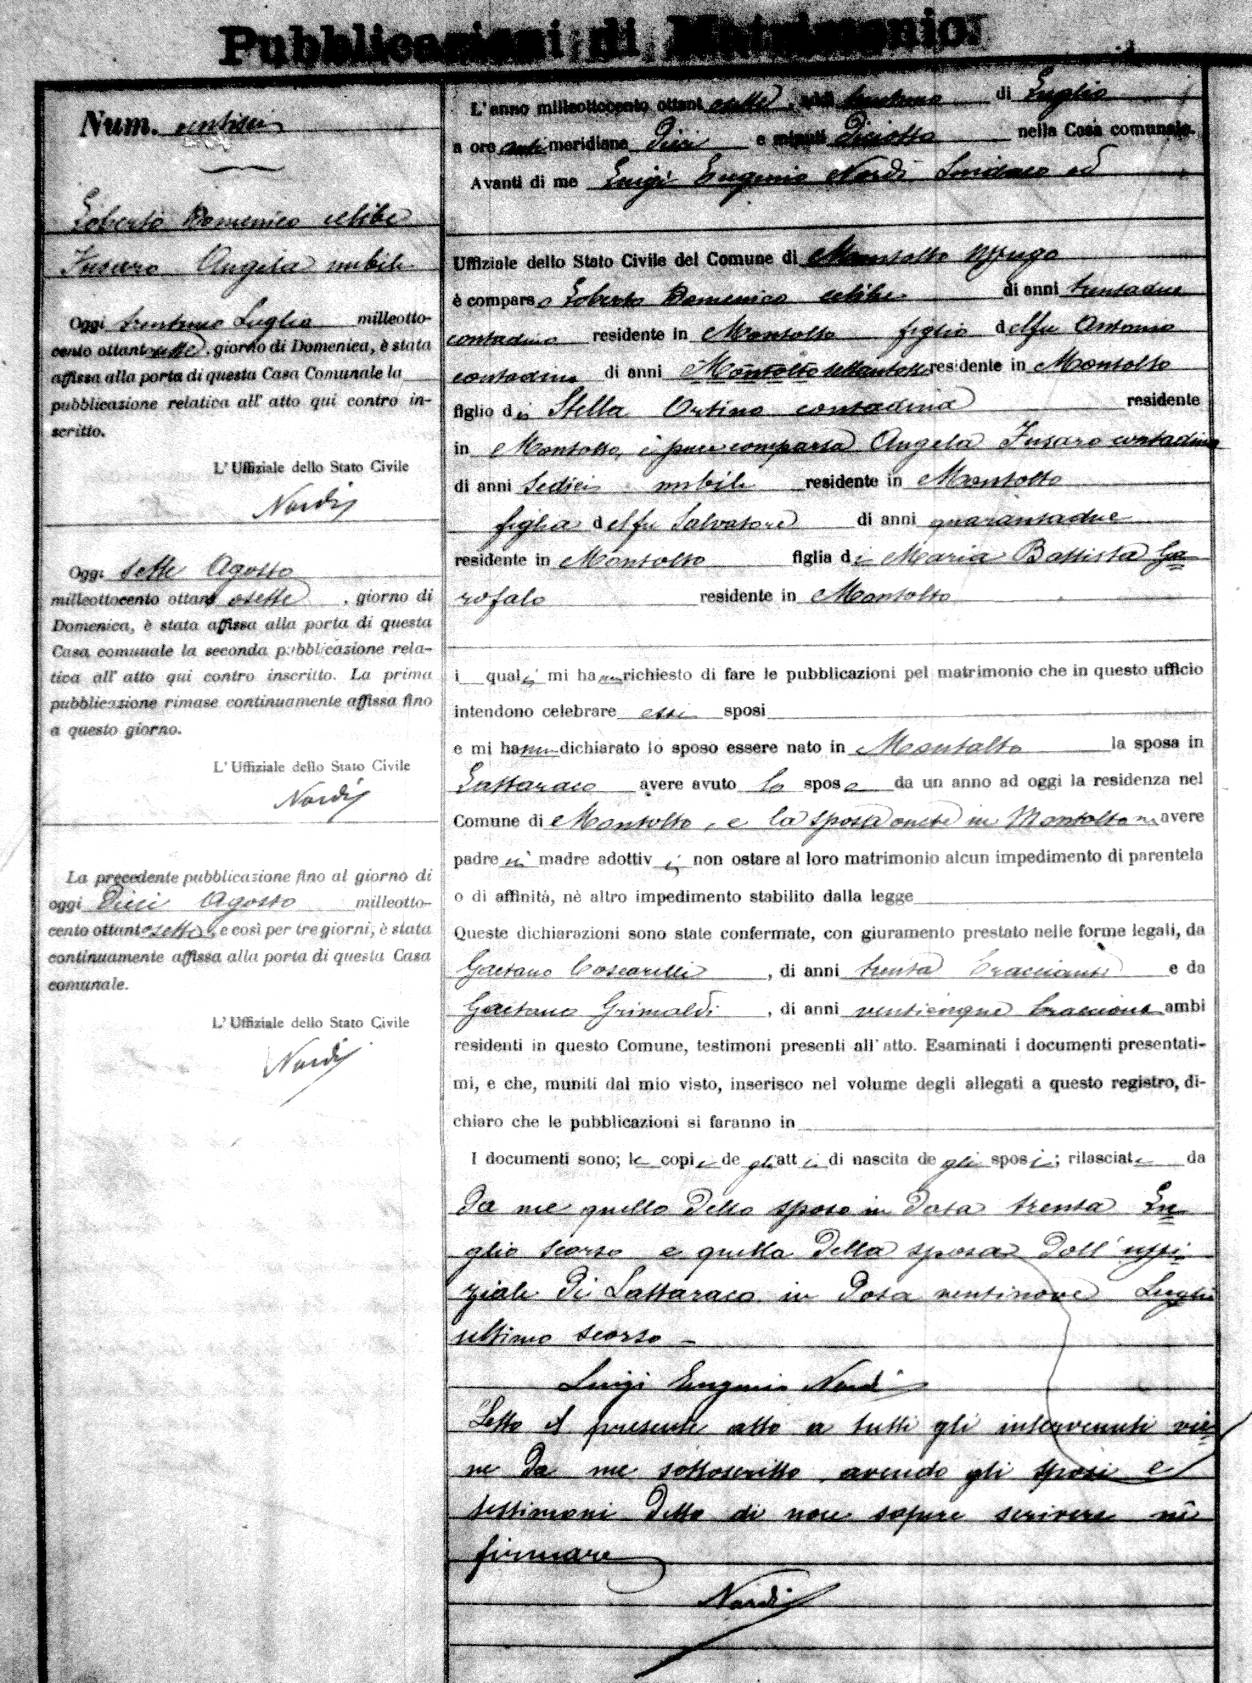 Pubblicazioni di Matrimonio.
Num. ventisei
Loberto Domenico celibe
Fusaro Angela nubile
Oggi trentuno Luglio milleotto-
cento ottantasette, giorno di Domenica, è stata
affissa alla porta di questa Casa Comunale la
pubblicazione relativa all' atto qui contro in-
scritto.
L' Uffiziale dello Stato Civile
Nardi
Oggi sette Agosto
milleottocento ottant osette, giorno di
Domenica, è stata affissa alla porta di questa
Casa comunale la seconda pubblicazione rela-
tiva all' atto qui contro inscritto. La prima
pubblicazione rimase continuamente affissa fino
a questo giorno.
L' Uffiziale dello Stato Civile
Nardi
La precedente pubblicazione fino al giorno di
oggi Dieci Agosto milleotto-
cento ottant osette, e così per tre giorni, è stata
continuamente affissa alla porta di questa Casa
comunale.
L' Uffiziale dello Stato Civile
Nardi
L' anno milleottocento ottant osette, addì trentuno di Luglio
a ore anti meridiane Dieci e minuti Diciotto nella Casa comunale.
Avanti di me Luigi Eugenio Nardi Sindaco ed
Uffiziale dello Stato Civile del Comune di Montalto Uffugo
è comparso Loberto Domenico celibe di anni trentadue
contadino residente in Montalto figlio del fu Antonio
contadino di anni residente in Montalto
figlio di Stella Ortino contadina residente
in Montalto, è pure comparsa Angela Fusaro contadina
di anni Sedici nubile residente in Montalto
figlia del fu Salvatore di anni quarantadue
residente in Montalto figlia di Maria Battista Ga
rofalo residente in Montalto
i quali mi hanno richiesto di fare le pubblicazioni pel matrimonio che in questo ufficio
intendono celebrare essi sposi
e mi hanno dichiarato lo sposo essere nato in Montalto la sposa in
Lattaraco avere avuto lo sposo da un anno ad oggi la residenza nel
Comune di Montalto, e la sposa anche in Montalto avere
padre nè madre adottivi non ostare al loro matrimonio alcun impedimento di parentela
o di affinità, nè altro impedimento stabilito dalla legge
Queste dichiarazioni sono state confermate, con giuramento prestato nelle forme legali, da
Gaetano Coscarelli, di anni trenta bracciante e da
Gaetano Grimaldi, di anni venticinque bracciante ambi
residenti in questo Comune, testimoni presenti all' atto. Esaminati i documenti presentati-
mi, e che, muniti dal mio visto, inserisco nel volume degli allegati a questo registro, di-
chiaro che le pubblicazioni si faranno in
I documenti sono; le copie degli atti di nascita degli sposi; rilasciate da
Da me quello dello sposo in data trenta Lu
glio scorso e quella della sposa dall' uffi
ziale di Lattaraco in data ventinove Luglio
ultimo scorso -
Luigi Eugenio Nardi
Letto il presente atto a tutti gli intervenuti vie
ne da me sottoscritto avendo gli sposi e
testimoni detto di non sapere scrivere nè
firmare
Nardi